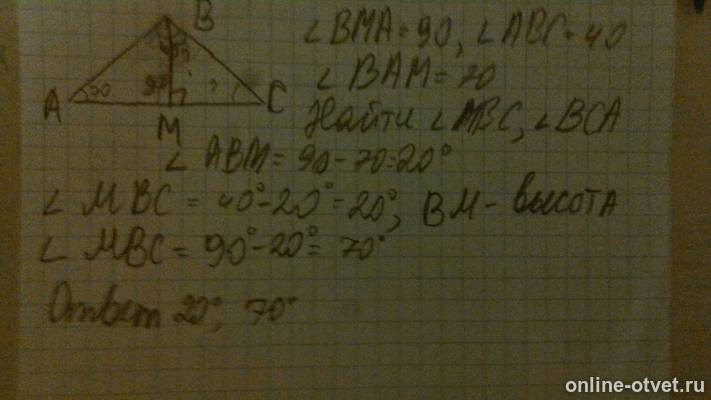 B
∠BMA = 90, ∠ABC = 40
∠BAM = 70
A 70 90 ? C
M
Найти ∠MBC, ∠BCA
∠ABM = 90-70=20°
∠MBC = 40°-20°=20°, BM - высота
∠MBC = 90°-20°= 70°
Ответ 20°, 70°
online-otvet.ru